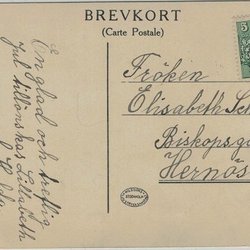 BREVKORT
(Carte Postale)
5
En glad och treflig
Jul tillönskas Elisabeth
Fröken
Elisabeth Sch
Biskopsg
Hernös